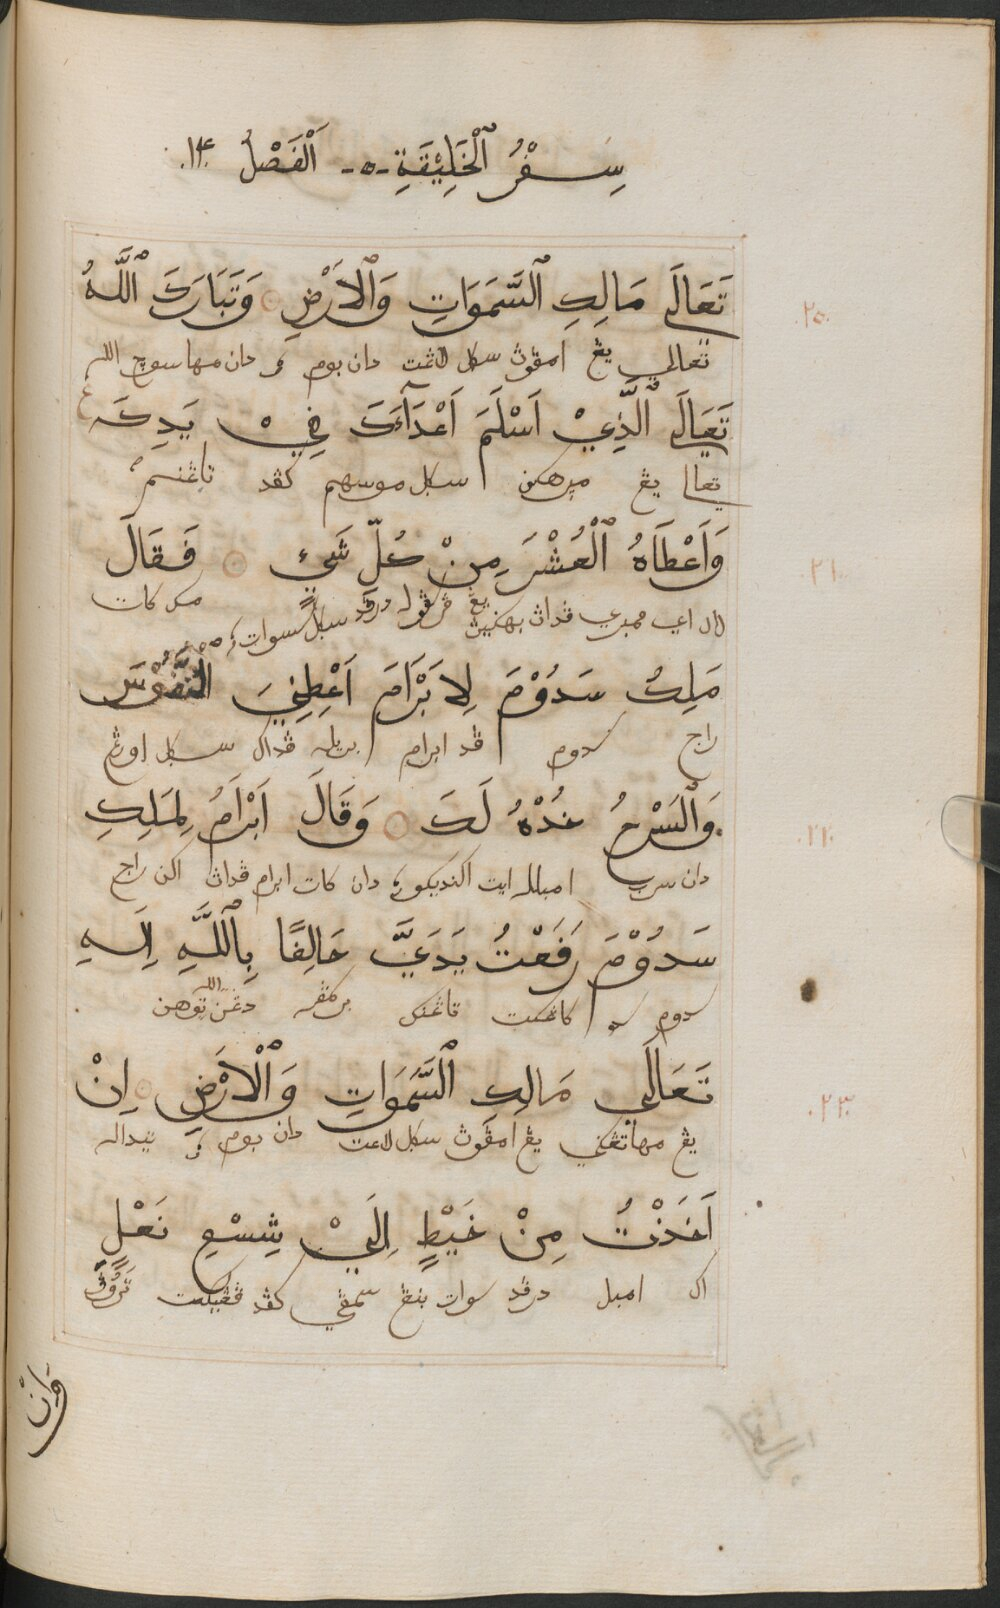 سِفْرُ ٱلْخَلِيْقَةِ -٥- اَلْفَصْلُ .١٤.
تَعَالَى مَالِكِ ٱلسَّمَوَاتِ وَٱلْاَرْضِ ○ وَتَبَارَكَ ٱللَّهُ
.٢٠.
تعالى يڠ امڤون سكل لاڠت دان بوم ۲ دان مها سوچ الله
تَعَالَى ٱلَّذِيْ اَسْلَمَ اَعْدَآءَكَ فِيْ يَدِكَ
تعالى يڠ ميرهكن سكل موسهم كڤد تاڠنم
وَاَعْطَاهُ ٱلْعُشْرَ مِنْ كُلِّ شَيْءٍ ○ فَقَالَ
.٢١.
لال اي ممبري ڤدان بهكين يڠ كڤوله درڤد سكل سسوات مك كات
مَلِكُ سَدُوْمَ لِاَبْرَامَ اَعْطِنِيَ ٱلنُّفُوْسَ
راج سدوم ڤد ابرام بريله ڤداك سكل اورڠ
وَٱلسَّرْحُ خُذْهُ لَكَ ○ وَقَالَ اَبْرَامُ لِمَلِكِ
.٢٢.
دان امبلله ايت اكنديكو دان كات ابرام ڤدان اكن راج
سَدُوْمَ رَفَعْتُ يَدَيَّ حَالِفًا بِٱللَّهِ اِلَهِ
سدوم كاڠكت تاڠنك دڠن الله توهن
تَعَالَى مَالِكِ ٱلسَّمَوَاتِ وَٱلْاَرْضِ ○ اِنْ
.٢٣.
يڠ مهاتڠكي يڠ امڤون سكل لاڠت دان بوم ۲ تيداله
اَخَذْتُ مِنْ خَيْطٍ اِلَيْ شِسْعِ نَعْلٍ
اك امبل درڤد سوات بنڠ سمڤي كڤد ڤڠيكت
وَاِنْ